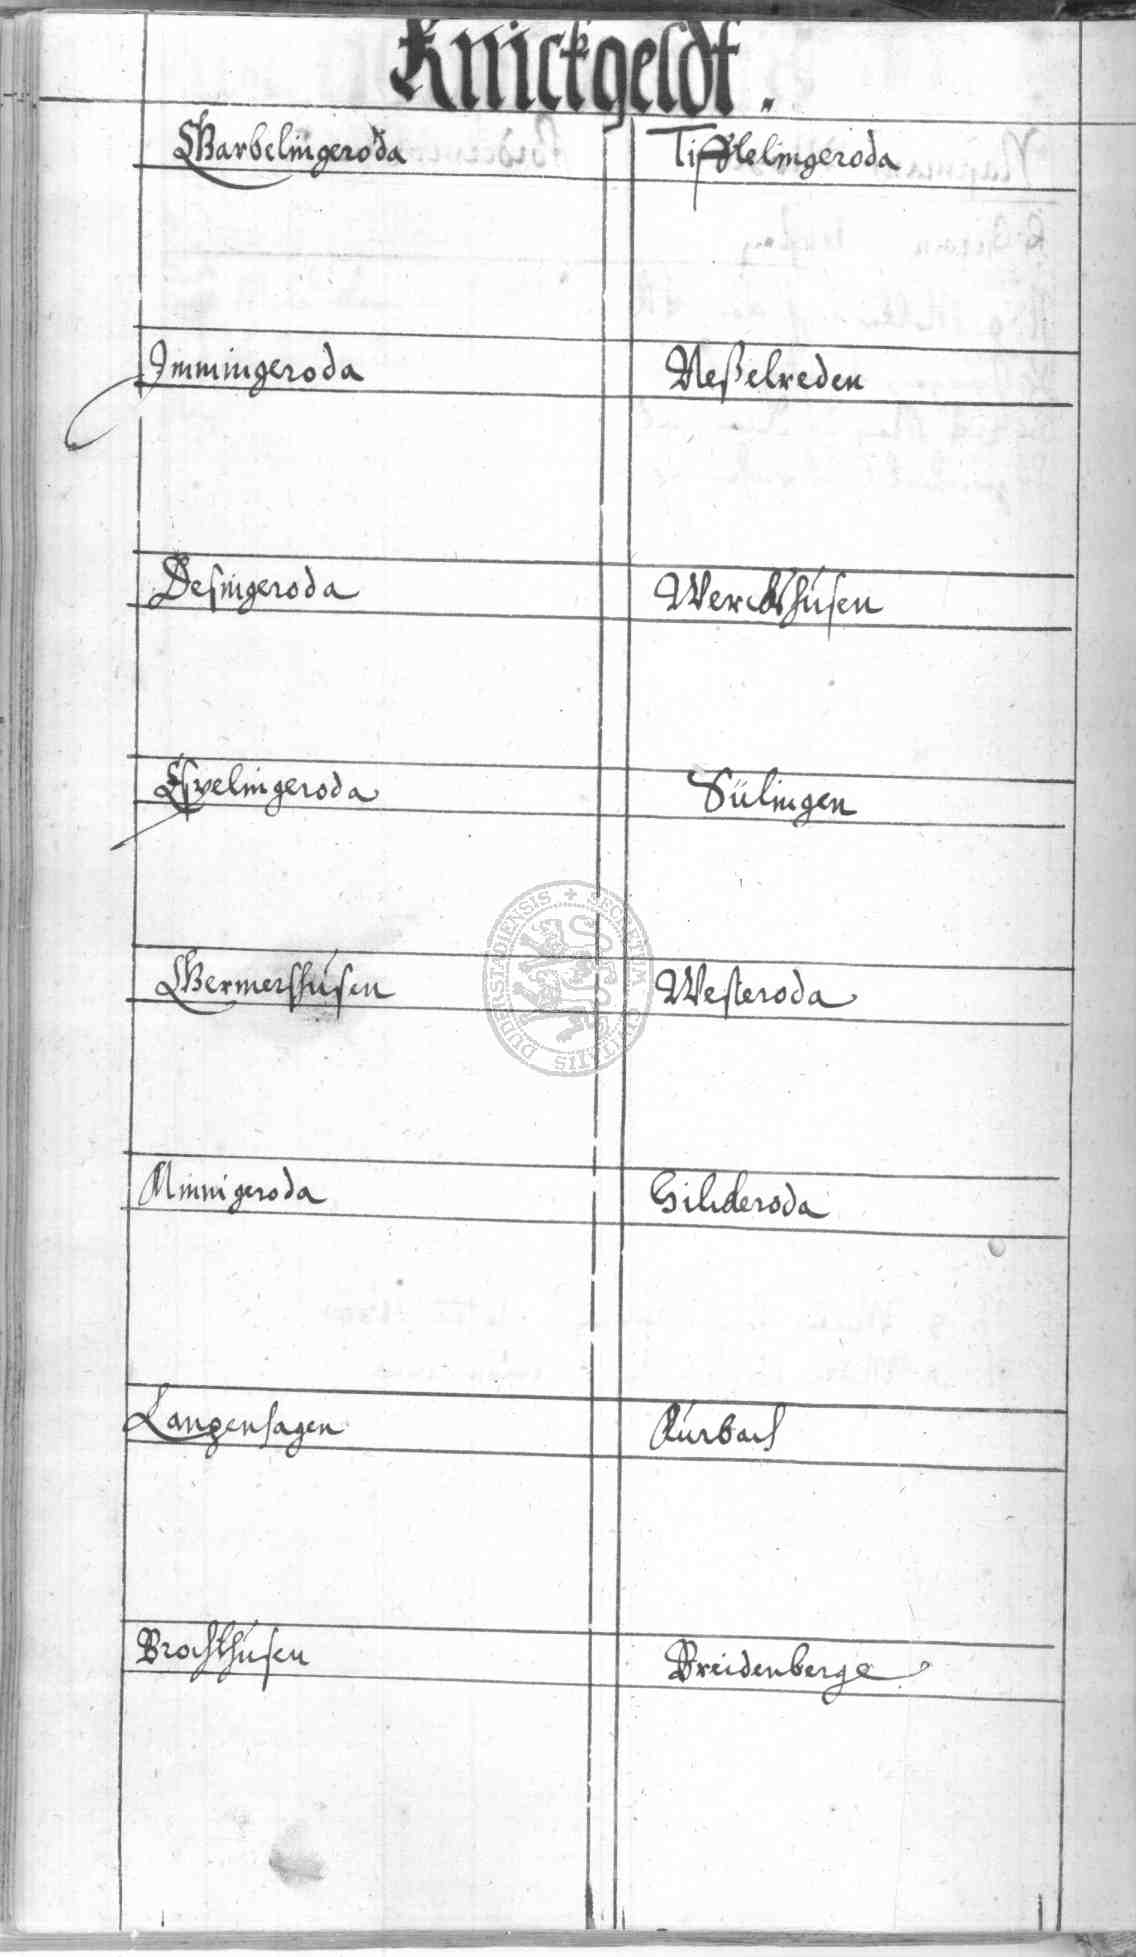 Knickgeldt.
Warbelingeroda
Tifftelingeroda
Immingeroda
Neßelreden
Desingeroda
Werckshusen
Esvelingeroda
Sülingen
Wermershusen
Westeroda
Minnigeroda
Hilckeroda
Langenhagen
Fürbach
Brochthusen
Breidenberge
SECRETUM CIVITATIS DUDERSTADIENSIS